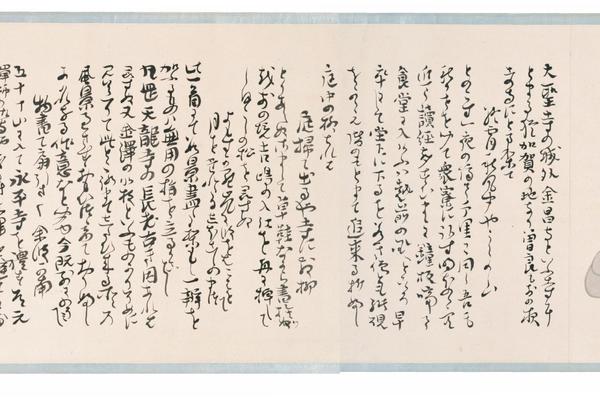 大聖寺の城外全昌寺といふ寺に
とまる猶加賀の地なり曽良も前の夜
此寺にとまりて
終宵秋風聞やうらの山
と残す一夜の隔千里に同し吾も
秋風を聞て衆寮に臥は明ほのゝ空
近う読経声すむまゝに鐘板鳴て
食堂に入けふは越前の国へと心早
卒にして堂下に下るを若き僧とも紙硯
をかゝえ階のもとまて追来る折節
庭中の柳散れは
庭掃て出るや寺にちる柳
とりあへぬさまして草鞋なから書捨
越前の境吉崎の入江を舟に棹して
汐越の松を尋ぬ
終宵嵐に波をはこはせて
月をたれたる汐越の松
此一首にて数景尽たりもし一弁を
加るものは無用の指を立るかことし
丸岡天龍寺の長老古き因あれは
尋ぬ又金澤の北枝といふものかりそめに
見送りて此処まてしたひ来る所々の
風景過さす思ひつゝけて折節
あはれなる作意なと聞ゆ今既別に望
物書て扇引さく余波哉
五十丁山に入て永平寺を礼す道元
禅師の御寺也